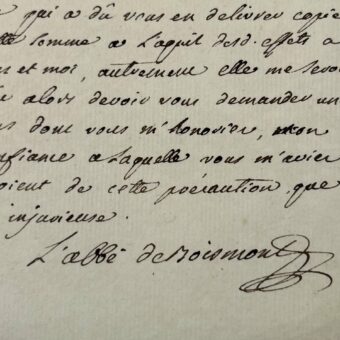 qui a dû vous en delivrer copie
somme a L'aquit desd. effets a
et moi, autrement elle me seroi
alors devoir vous demander un
dont vous m'honoriez, mon
nfiance a Laquelle vous m'aviez
oient de cette précaution que
injurieuse.
L'abbé de Boismont